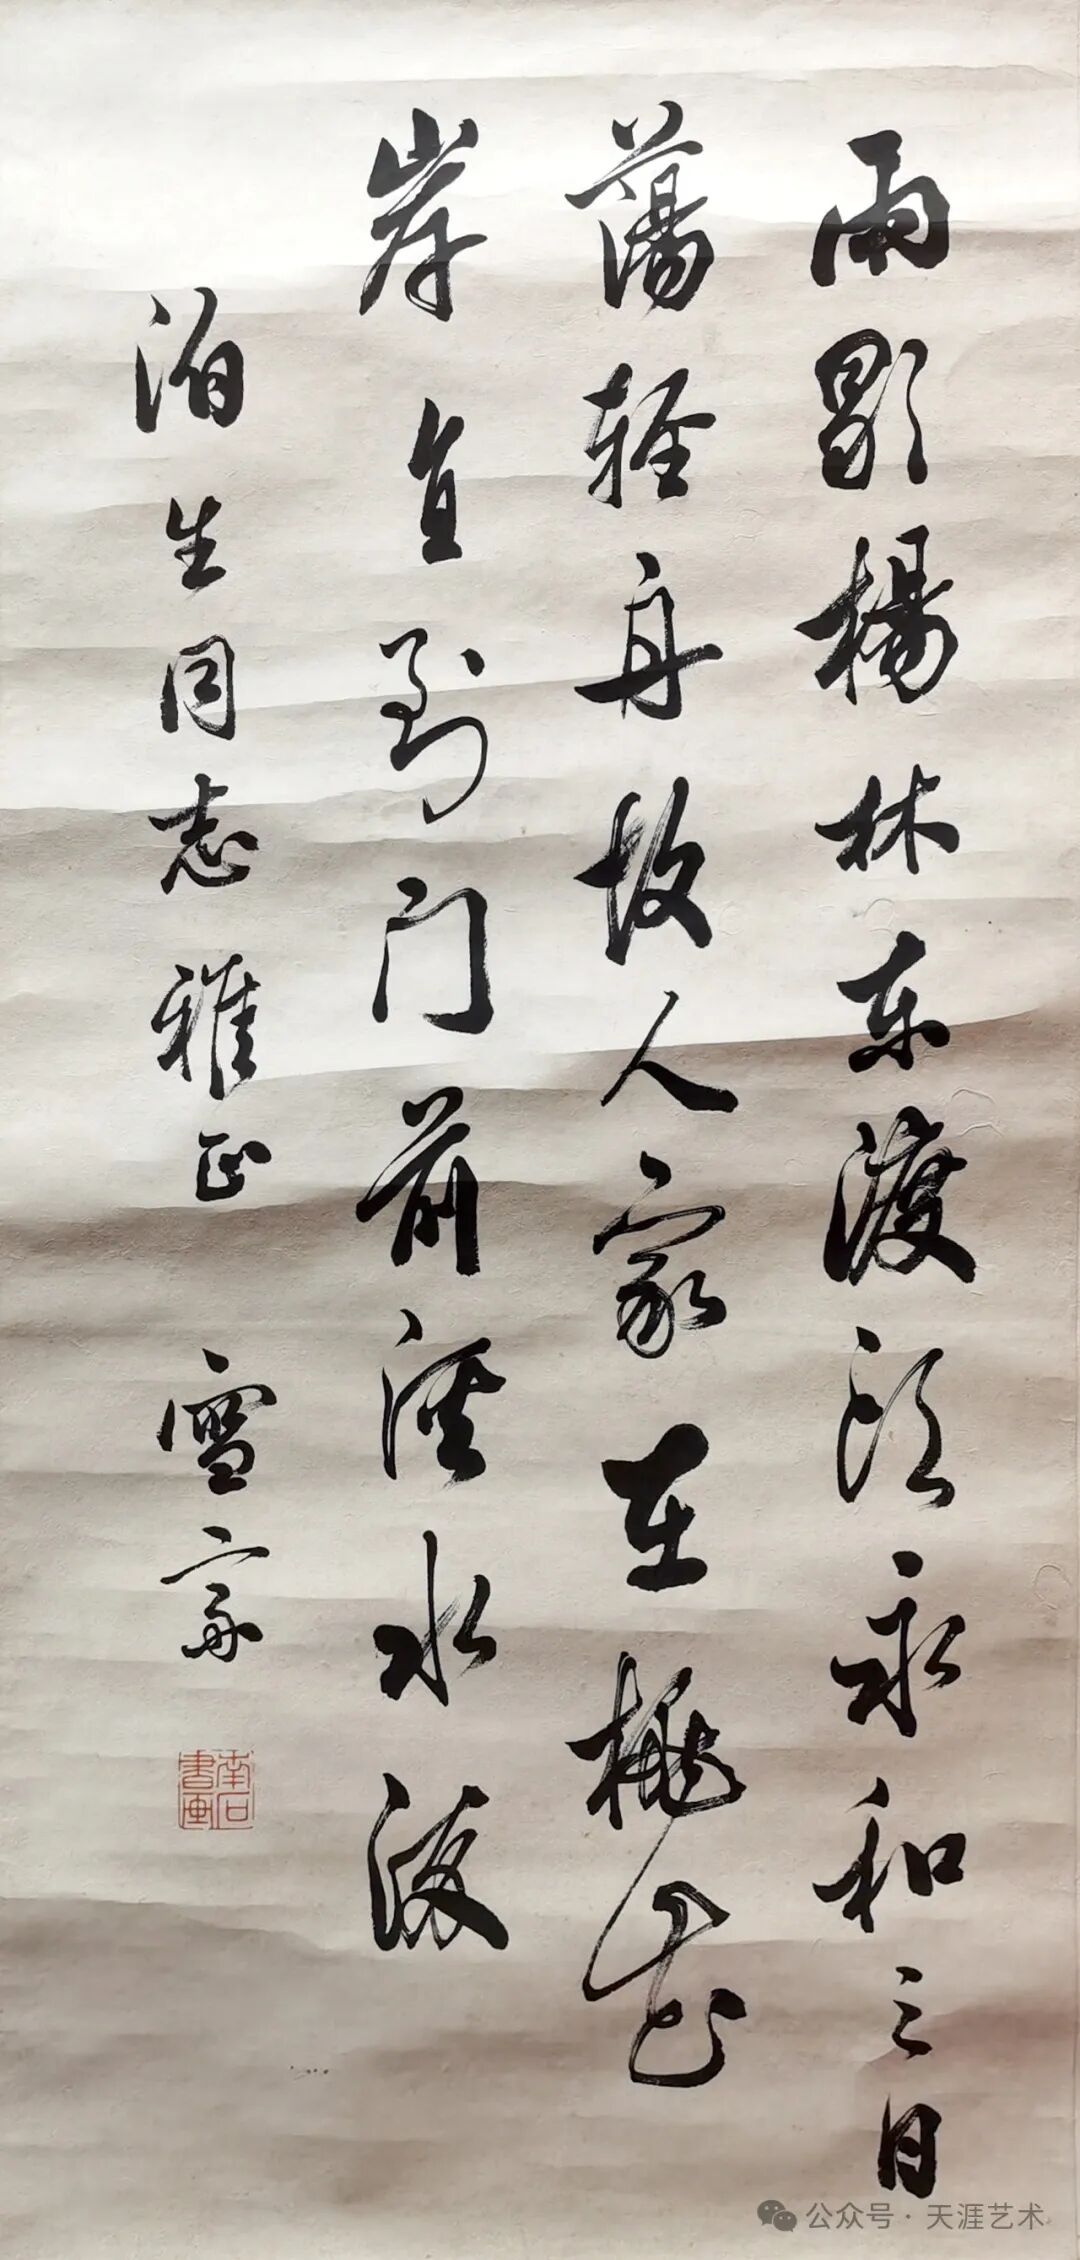 雨歇楊林东渡头永和三日
蕩轻舟故人家在桃花
岸直到门前溪水流
泊生同志雅正 雪
南石書画
公众号·天涯艺术